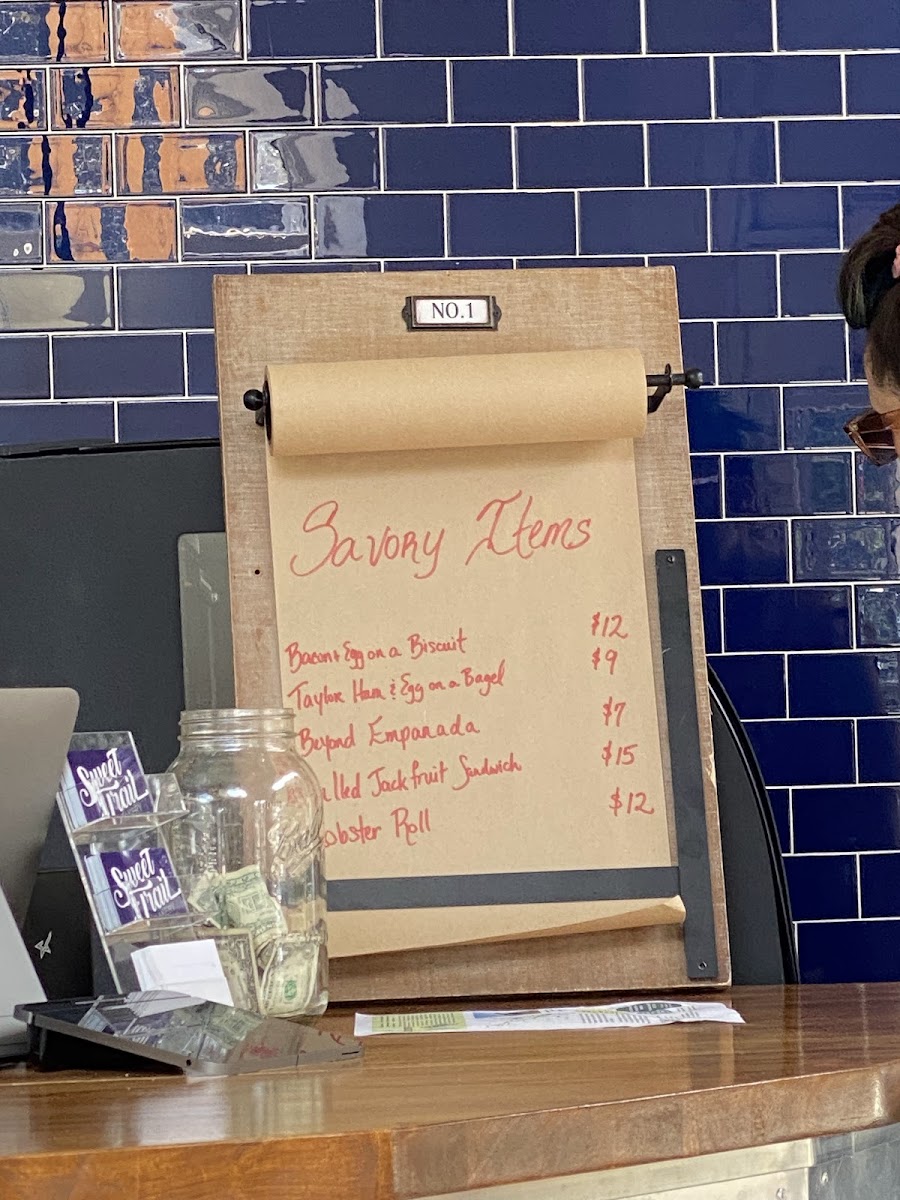 NO.1
Savory Items
Bacon & Egg on a Biscuit $12
Taylor Ham & Egg on a Bagel $9
Beyond Empanada $7
lled Jackfruit Sandwich $15
obster Roll $12
Sweet
Trail
Sweet
Trail